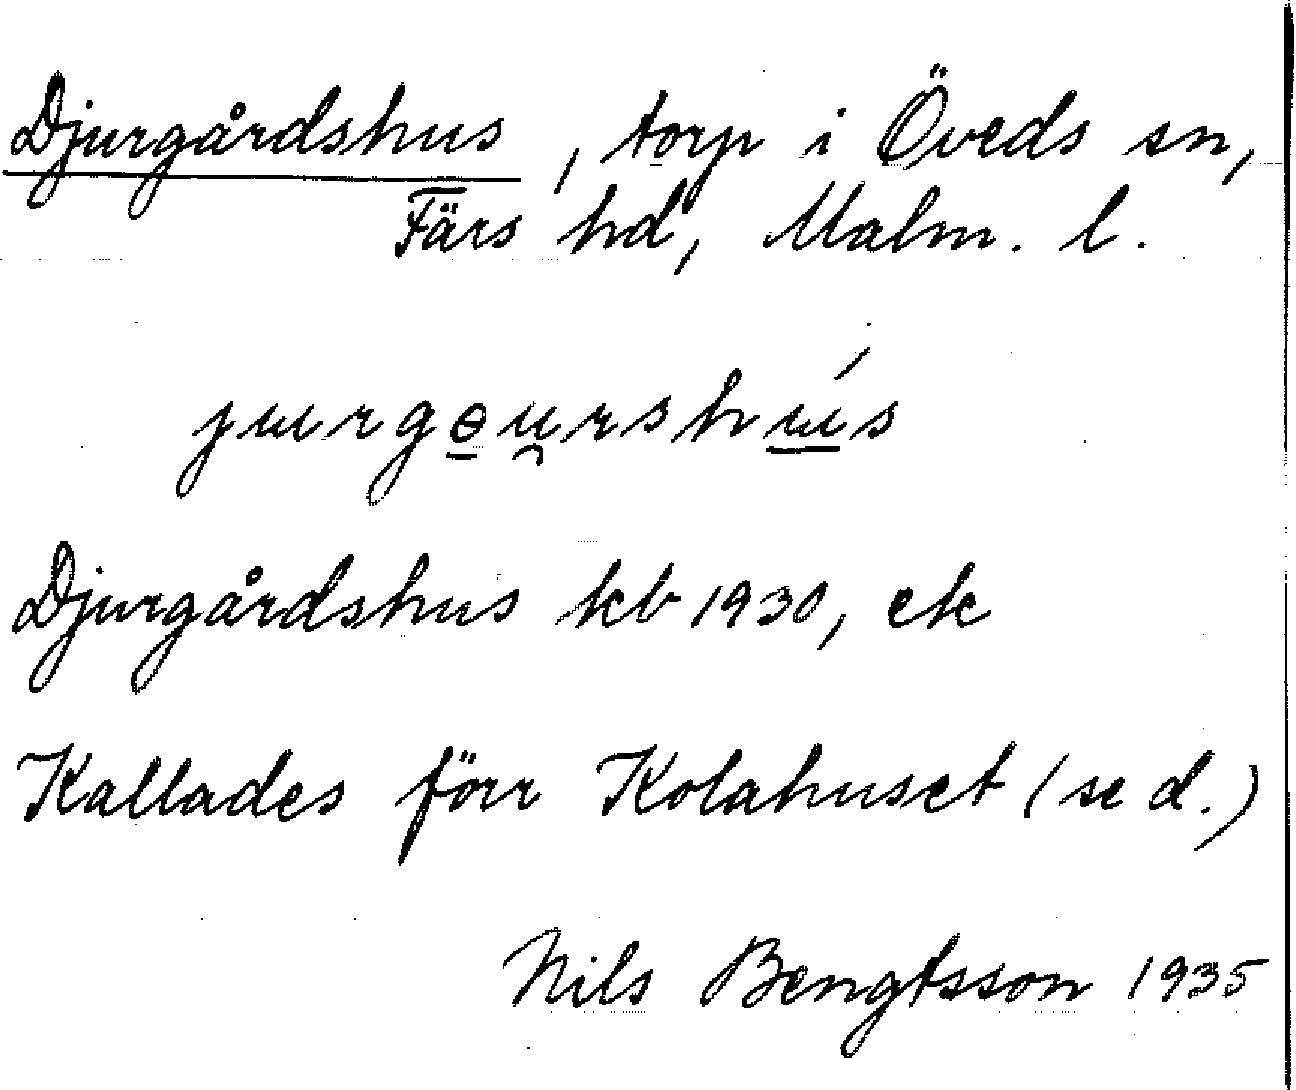 Djurgårdshus, torp i Öveds sn,
Färs hd, Malm. l.
jɯrgɵu̯rshɯ́s
Djurgårdshus kb 1930, ek
Kallades förr Kolahuset (se d.)
Nils Bengtsson 1935